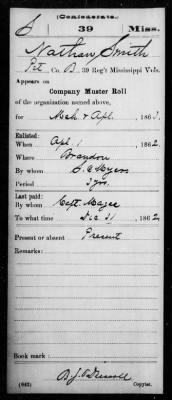 (Confederate.)
S 39 Miss.
Nathan Smith
Pvt Co. B, 39 Reg't Mississippi Vols.
Appears on
Company Muster Roll
of the organization named above,
for Mch & Apl, 1863.
Enlisted:
When Apl 1, 1862.
Where Brandon
By whom Myers
Period 3 yrs.
Last paid:
By whom Capt. Magee
To what time Dec 31, 1862.
Present or absent Present
Remarks:
Book mark:
(642) Copyist.